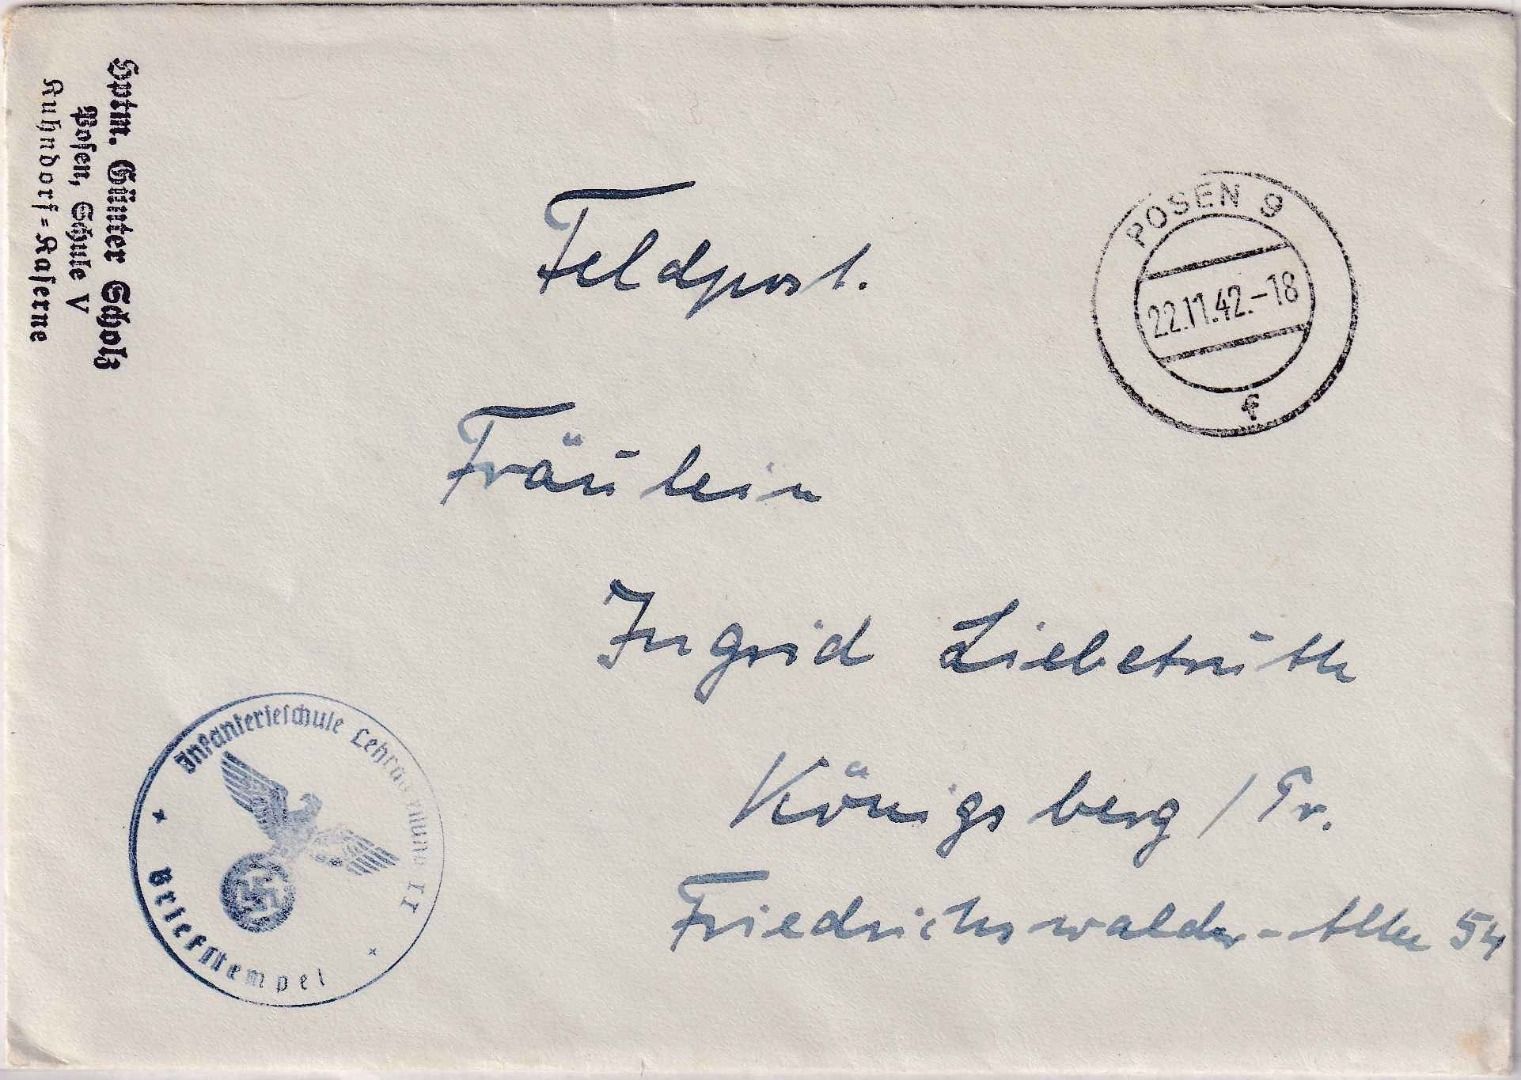 Hptm. Günter Scholz
Posen, Schule V
Kuhndorf=Kaserne
Feldpost.
POSEN 9
22.11.42.-18
f
Fräulein
Ingrid Liebetrüth
Königsberg / Pr.
Friedrichswalder-Allee 54
Infanterieschule Lehrabteilung II
Briefstempel